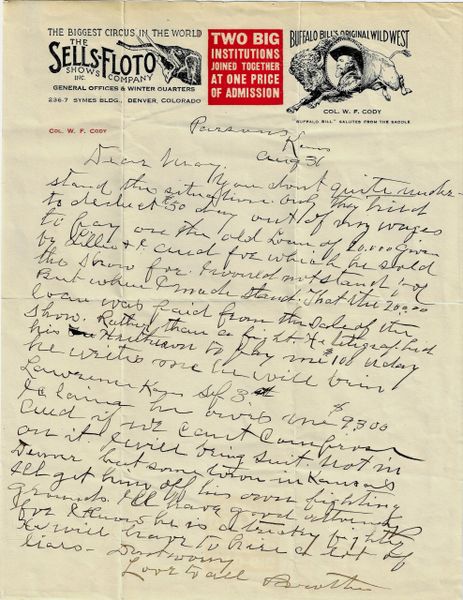 THE BIGGEST CIRCUS IN THE WORLD
THE
SELLS-FLOTO
SHOWS COMPANY
INC.
GENERAL OFFICES & WINTER QUARTERS
236-7 SYMES BLDG., DENVER, COLORADO
TWO BIG
INSTITUTIONS
JOINED TOGETHER
AT ONE PRICE
OF ADMISSION
BUFFALO BILL'S ORIGINAL WILD WEST
COL. W. F. CODY
"BUFFALO BILL" SALUTES FROM THE SADDLE
COL. W. F. CODY
Parsons Kans
Aug 31
Dear May.
You dont quite under-
stand the situation. only they tried
to deduct $50 day out of my wages
to pay on the old loan of 20,000 given
by and for which he sold
the Show for. I would not stand for
But when I made stand. That the 20000
loan was paid from the Sale of the
Show. Rather than a fight H telegraphed
his to pay me $100 a day
he writes me he will be in
Lawrence Kans Sep 3rd
I claim he owes me $9,300
and if we cant Compromise
on it I will bring Suit. Not in
Denver but some town in Kansas
Ill get him off his own fighting
grounds. Ill have good attorneys
for I know he is a tricky fighter
He will have to hire a lot of
liars - Dont worry
Love to all Brother